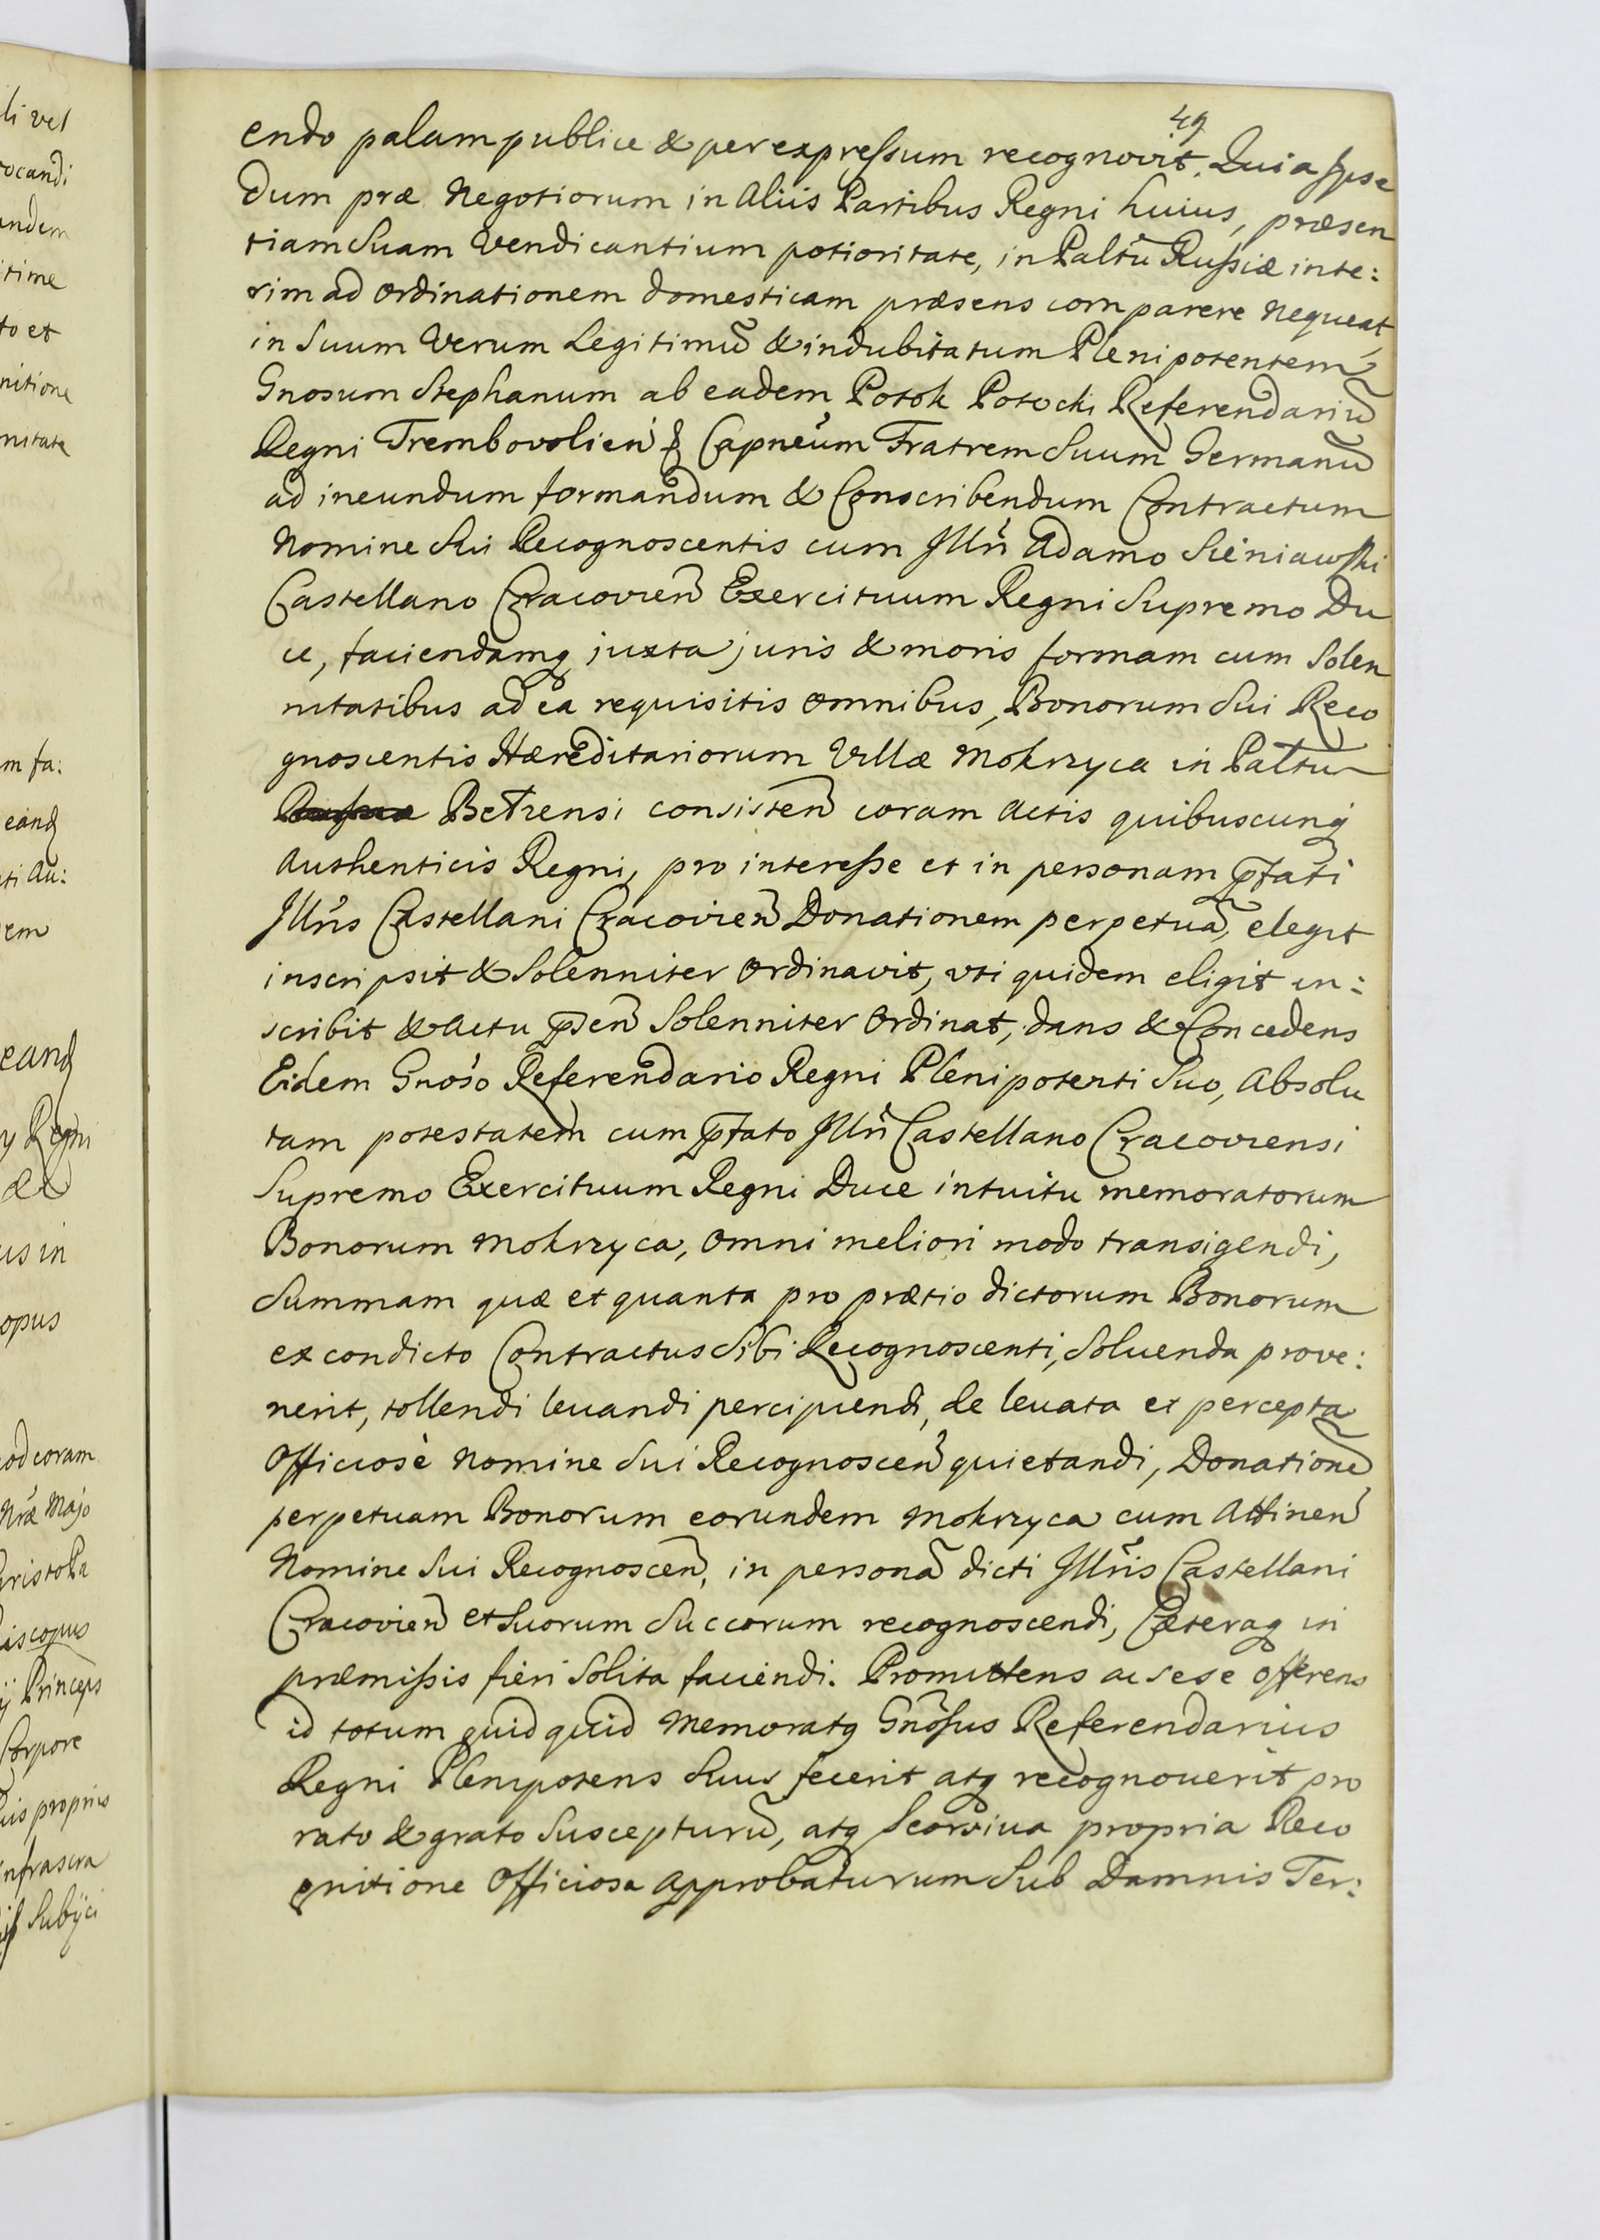 li vel
vocandi
andem
itime
to et
nitione
nitate
m fa:
eandꝫ
ti Au:
em
eandꝫ
y Regni
us in
opus
od coram
Nrǽ Majo
Christopha
iscopus
ij Princeps
Corpore
uis proprius
infrascra
Subijci
49
endo palam publice & per expressum recognovit. Quia Ipse
dum præ Negotiorum in Aliis Partibus Regni huius, præsen
tiam Suam Vendicantium potioritate, in Paltũ Russiæ inte:
rim ad Ordinationem domesticam præsens comparere nequeat,
in Suum Verum Legitimũ & indubitatum Plenipotentem
Gnosum Stephanum ab eadem Potok Potocki Referendariũ
Regni Trembovolień & Capneum Fratrem Suum Germanũ
ad ineundum formandum & Conscribendum Contractum
Nomine Sui Recognoscentis cum Illñ Adamo Sieniawski
Castellano Cracovień Exercituum Regni Supremo Du
ce, faciendamqꝫ juxta juris & moris formam cum Solen
nitatibus ad ea requisitis omnibus, Bonorum Sui Reco
gnoscentis Hæreditariorum Villæ Mokrzyca in Paltu
Belzensi consisteñ coram Actis quibuscunqꝫ
Authenticis Regni, pro interesse et in personam p̃fati
Illñis Castellani Cracovieñ Donationem perpetuã, elegit
inscripsit & Solenniter Ordinavit, uti quidem eligit in:
scribit & Actu p̃señ Solenniter Ordinat, dans & Concedens
Eidem Gnoso Referendario Regni Plenipotenti Suo, Absolu
tam potestatem cum p̃fato Illñ Castellano Cracoviensi
Supremo Exercituum Regni Duce intuitu memoratorum
Bonorum Mokrzyca, omni meliori modo transigendi,
Summam quæ et quanta pro prætio dictorum Bonorum
ex condicto Contractus Sibi Recognoscenti, Soluenda prove:
nerit, tollendi leuandi percipiendi, de leuata et percepta
Officiosè Nomine Sui Recognosceñ quietandi, Donationẽ
perpetuam Bonorum eorundem Mokrzyca cum Attineñ
Nomine Sui Recognosceñ, in personã dicti Illñis Castellani
Cracovieñ et Suorum Succorum recognoscendi, Cæteraqꝫ in
præmissis fieri Solita faciendi. Promittens ac sese offerens
id totum quidquid Memoratꝫ Gnosus Referendarius
Regni Plenipotens Suus fecerit atqꝫ recognouerit pro
rato & grato Suscepturũ, atqꝫ Seorsiua propria Reco
gnitione Officiosa Approbaturum Sub Damnis Ter: